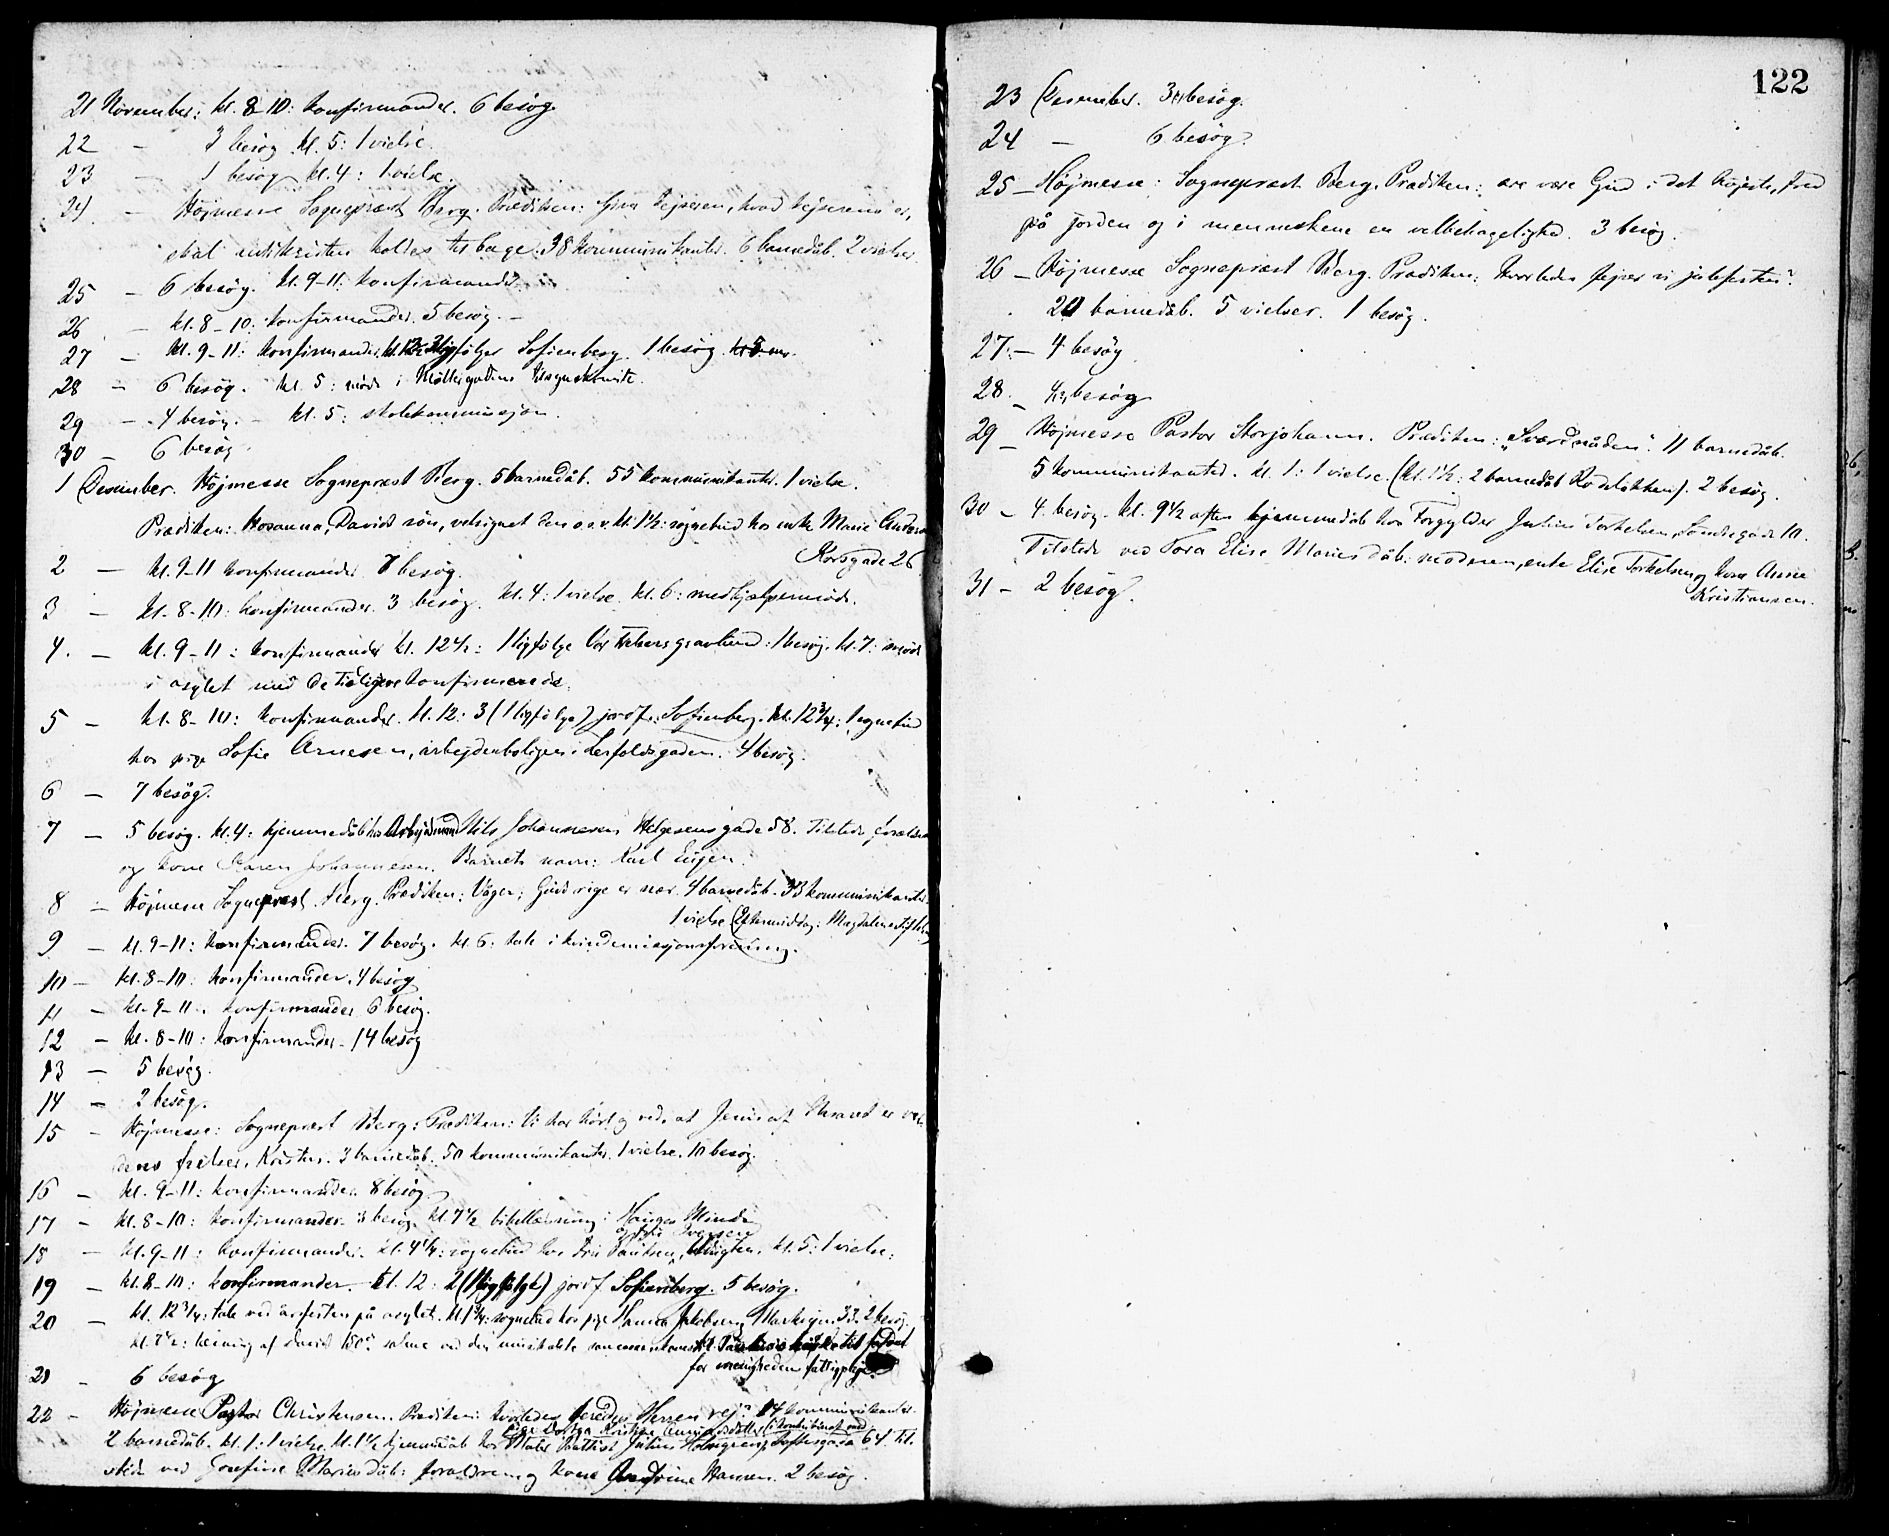 21 November: kl. 8-10: konfirmander. 6 besøg
22 - 3 besøg kl. 5: 1 vielse.
23 - 1 besøg kl. 4: 1 vielse.
24 - Højmesse Sognepræst Berg. Prædiken: Giv kejseren, hvad kejserens er,
skal antikristen holdes tilbage. 38 kommunikanter. 6 barnedåb. 2 vielser.
25 - 6 besøg. kl. 9-11: konfirmander.
26 - kl. 8-10: konfirmander. 5 besøg. -
27 - kl. 9-11: konfirmander. ligfølge Sofienberg. 1 besøg.
28 - 6 besøg. kl. 5: møde i Møllergadens tilsynskomite.
29 - 4 besøg. - kl. 5: skolekommissjon.
30 - 6 besøg.
1 Desember. Højmesse Sognepræst Berg. 5 barnedåb. 55 kommunikanter. 1 vielse.
Prædiken: Hosanna, Davids søn, velsignet den o.s.v. kl. 1½: sognebud hos enke Marie
Korsgade 26
2 - kl. 9-11 konfirmander 7 besøg.
3 - kl. 8-10: konfirmander. 3 besøg. kl. 4: 1 vielse. kl. 6: medhjælpermøde.
4. - kl. 9-11: konfirmander kl. 12½: 1 ligfølge Vor Frelsers gravlund: 1 besøg. kl. 7: møde
i asylet med de tidligere konfirmerede.
5 - kl. 8-10: konfirmander. kl. 12: 3 (1 ligfølge) jordf. Sofienberg. kl. 12¾: 1 sognebud
hos pige Sofie Arnesen, arbejderboligen i Herfoldsgaden. 4 besøg.
6 - 7 besøg.
7 - 5 besøg. kl. 4: hjemmedåb hos Arbejdsmand Nils Johannesen Helgesens gade 58. Tilstede forældrene
og kone Karen Johannesen. Barnets navn: Karl Eugen.
8 - Højmesse Sognepræst Berg. Prædiken: Våger; Guds rige er nær. 4 barnedåb. 33 kommunikanter.
1 vielse (Eftermiddag: Magdalenestiftelsen
9 - kl. 9-11: konfirmander. 7 besøg. kl. 6: tale i kvindemissjonsforening.
10 - kl. 8-10: konfirmander. 4 besøg
11 - kl. 9-11: konfirmander 6 besøg.
12 - kl. 8-10: konfirmander - 14 besøg
13 - 5 besøg.
14 - 2 besøg.
15 - Højmesse: Sognepræst Berg: Prædiken: Vi har hørt og ved, at denne er ver-
dens frelser, Kristus. 3 barnedåb. 50 kommunikanter. 1 vielse. 10 besøg.
16 - kl. 9-11: konfirmander. 8 besøg
17 - kl. 8-10: konfirmander. 3 besøg. kl. 7½ bibellæsning i Hauges Minde
18 - kl. 9-11: konfirmander. kl. 4¼: sognebud hos Fru kl. 5: 1 vielse.
19 - kl. 8-10: konfirmander. kl. 12: 2 (1 ligfølge) jordf Sofienberg. 5 besøg.
20 - kl. 12¾: tale ved årsfesten på asylet. kl. 1¾: sognebud hos pige Hanna Jakobsen, Markvejen 33. 2 besøg.
kl. 7½: læsning af Davids 150de salme ved den musikalske
for menighedens fattigpleje.
21 - 6 besøg
22 - Højmesse Pastor Christensen. Prædiken: hvorledes beredes Herrens vej? 14 kommunikanter.
2 barnedåb. kl. 1: 1 vielse. kl. 1½ hjemmedåb hos Maler Julius Holmgren, Toftesgade 64. Til-
stede ved Josefine Maries dåb: forældrene og kone Hansen. 2 besøg.
122
23 Desember. 3 besøg.
24 - 6 besøg.
25 - Højmesse: Sognepræst Berg. Prædiken: ære være Gud i det højeste, fred
på jorden og i menneskene en velbehagelighed. 3 besøg.
26 - Højmesse Sognepræst Berg. Prædiken: hvorledes fejrer vi julefesten?
20 barnedåb. 5 vielser. 1 besøg.
27. - 4 besøg
28. - 4 besøg
29 - Højmesse Pastor Storjohann. Prædiken: "Sværdmåden". 11 barnedåb.
5 kommunikanter. kl. 1: 1 vielse. (kl. 1½: 2 barnedåb Rodeløkken). 2 besøg.
30 - 4 besøg. kl. 9½ aften hjemmedåb hos Forgylder Julius Torkelsen, Søndregade 10.
Tilstede ved Tora Elise Maries dåb: moderen, enke Elise Torkelsen og kone Anne
Kristiansen.
31 - 2 besøg.